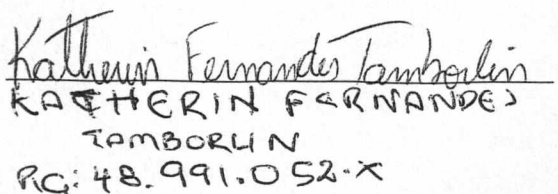 Katherin Fernandes Tamborlin
KATHERIN FERNANDES
TAMBORLIN
RG: 48.991.052-X